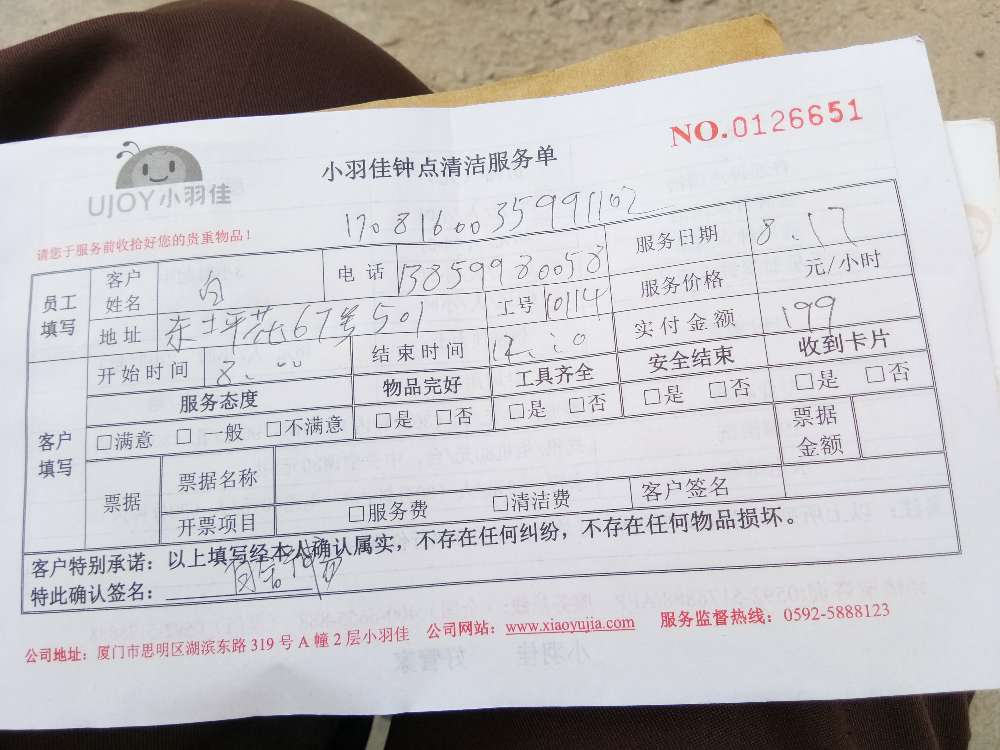 NO.0126651
UJOY小羽佳
小羽佳钟点清洁服务单
请您于服务前收拾好您的贵重物品！
17081600035991102
员工填写 客户姓名 电话 13859980058 服务日期 8.17
地址 东坪花67号501 工号 10114 服务价格 元/小时
开始时间 8.00 结束时间 12.00 实付金额 199
客户填写 服务态度 物品完好 工具齐全 安全结束 收到卡片
□满意 □一般 □不满意 □是 □否 □是 □否 □是 □否 □是 □否
票据 票据名称 票据金额
开票项目 □服务费 □清洁费 客户签名
客户特别承诺：以上填写经本人确认属实，不存在任何纠纷，不存在任何物品损坏。
特此确认签名：
公司地址：厦门市思明区湖滨东路319号A幢2层小羽佳 公司网站：www.xiaoyujia.com 服务监督热线：0592-5888123